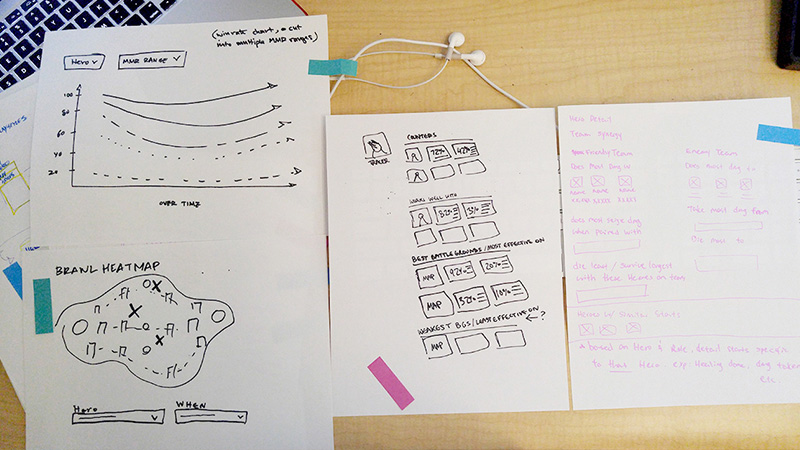 (winrate chart, a cut
into multiple MMR ranges)
Hero
MMR RANGE
100
80
60
40
20
OVER TIME
BRAWL HEATMAP
Hero
WHEN
TRACER
COUNTERS
72%
42%
WORKS WELL WITH
32%
3%
BEST BATTLE GROUNDS/MOST EFFECTIVE ON
MAP
92%
20%
MAP
32%
10%
WEAKEST BGS/LEAST EFFECTIVE ON
?
MAP
Hero Detail
Team Synergy
Friendly Team
Does Most Dmg w/
name name name
xx.xxx xx.xxx xx.xxx
does most siege dmg
when paired with
die least / survive longest
with these Heroes on team
Enemy Team
Does most dmg to
Take most dmg from
Die most to
Heroes w/ Similar Stats
based on Hero & Role, detail stats specific
to that Hero, exp. Healing done, dmg taken
etc